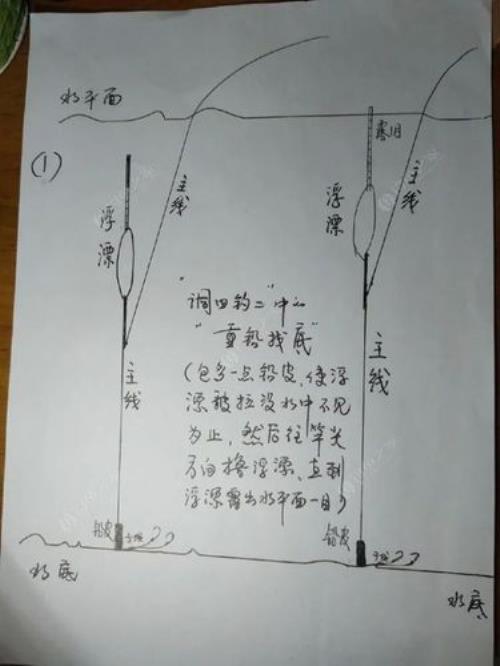 水平面
(1)
浮漂
主线
主线
铅皮
子线
水底
露1目
浮漂
主线
主线
铅皮
子线
水底
"调四钓二"中之
"重铅找底"
(包多一点铅皮,使浮
漂被拉没水中不见
为止,然后往竿尖
方向撸浮漂,直到
浮漂露出水平面一目)